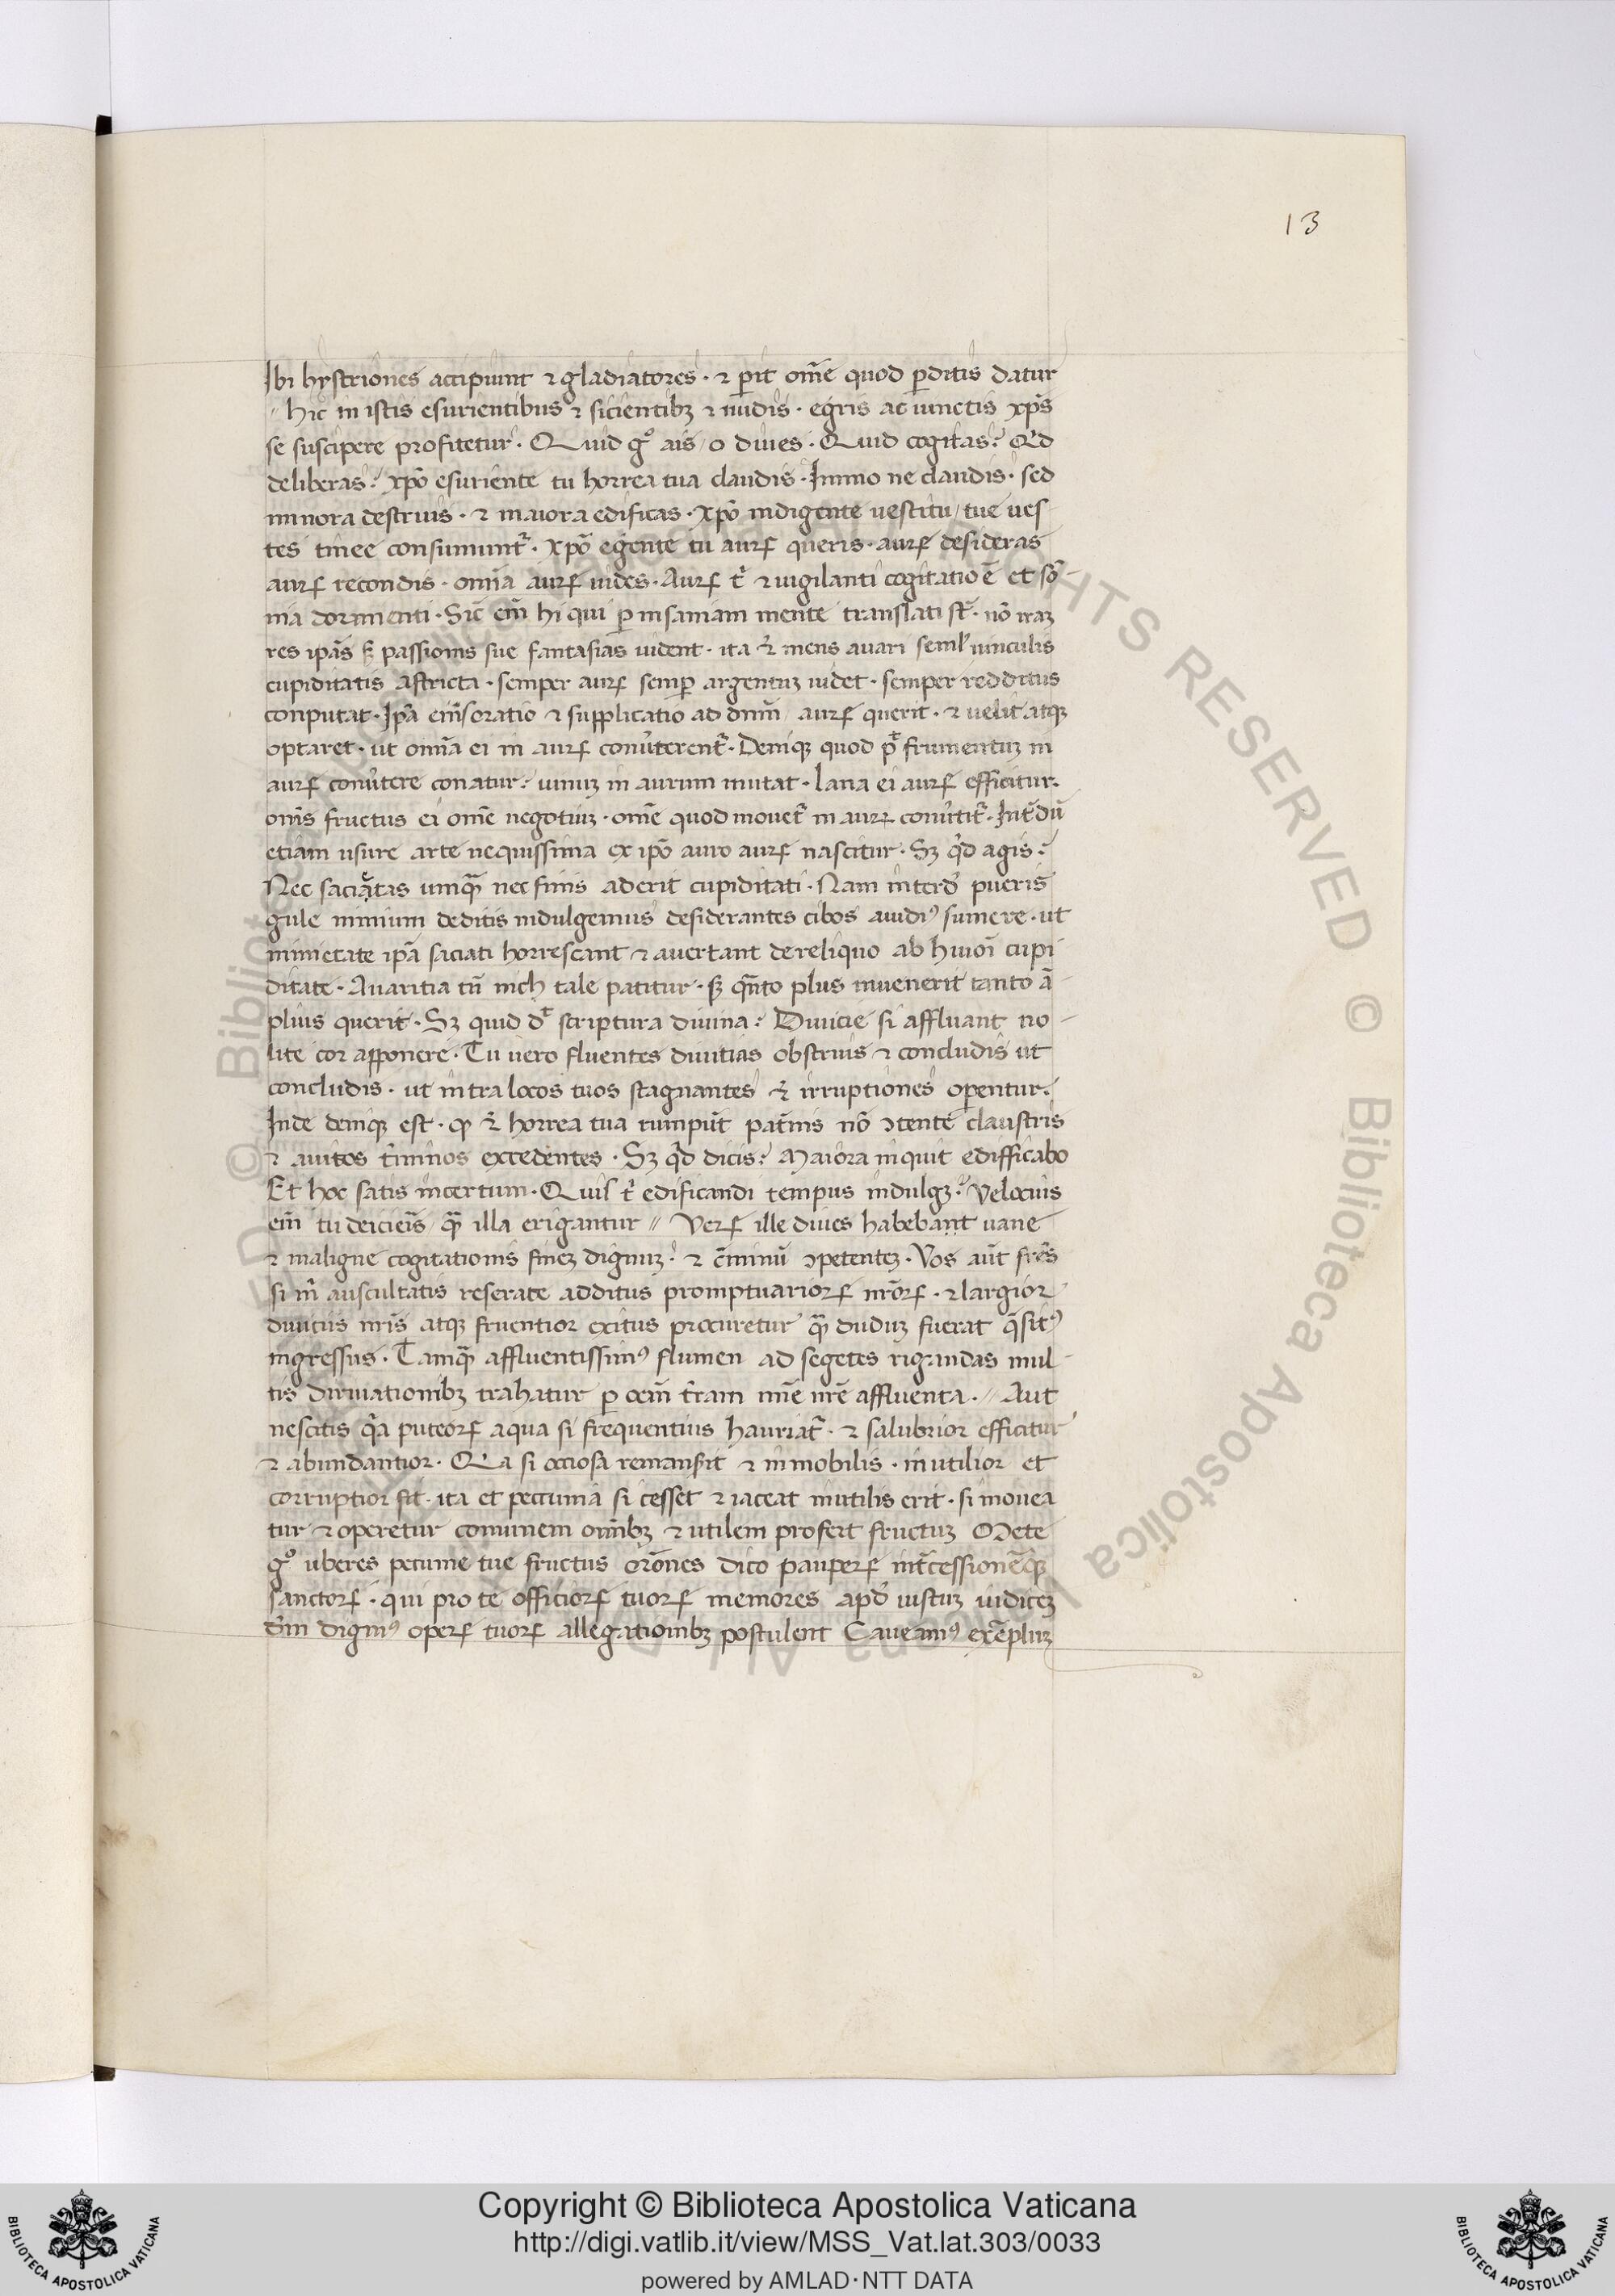 13
Ibi hystriones accipiunt ⁊ gladiatores · ⁊ ꝑit om̄e quod ꝑditis datur
// hic in istis esurientibus ⁊ sicientibꝫ ⁊ nudis · egris ac uinctis xp̄s
se suscipere profitetur · Quid gͦ ais / o diues · Quid cogitas? Qͥd
deliberas? xp̄o esuriente tu horrea tua claudis · Immo ne claudis · sed
minora destruis · ⁊ maiora edificas · Xp̄o indigente uestitu / tue ues-
tes tinee consumunt᷑ · Xp̄o egente tu auꝝ queris · auꝝ desideras
auꝝ recondis · om̄ia auꝝ uides · Auꝝ t᷑ ⁊ uigilanti cogitatio ē et sō-
nia dormienti · Sic em̄ hi qui ꝑ insaniam mente translati st̄ · nō iaꝫ
res ip̄as sꝫ passionis sue fantasias uident · ita ⁊ mens auari seml̕ uinculis
cupiditatis astricta · semper auꝝ semꝑ argentuꝫ uidet · semper redditus
conputat · Ip̄a em̄ oratio ⁊ supplicatio ad dn̄m auꝝ querit · ⁊ uelit atqꝫ
optaret · ut om̄ia ei in auꝝ conũterent᷑ · Deniqꝫ quod pt̄ frumentuꝫ in
auꝝ conũtere conatur? uinuꝫ in aurum mutat · lana ei auꝝ efficitur.
om̄s fructus ei om̄e negotiuꝫ · om̄e quod mouet᷑ in auꝝ conũtit᷑ · Int᷑dū
etiam usure arte nequissima ex ip̄o auro auꝝ nascitur · Sꝫ qͥd agis?
Nec sacietas umqᷓ nec finis aderit cupiditati · Nam interdū pueris
gule nimium deditis indulgemus desiderantes cibos auidiꝰ sumere · ut
nimietate ip̄a saciati horrescant ⁊ auertant de reliquo ab huiōi cupi
ditate · Auaritia tn̄ nich tale patitur · sꝫ qn̄to plus inuenerit tanto ā-
plius querit · Sꝫ quid dt̄ scriptura diuina? Diuicie si affluant no-
lite cor apponere · Tu uero fluentes diuitias obstruis ⁊ concludis ut
concludis · ut intra locos tuos stagnantes ⁊ irruptiones oꝑentur?
Inde deniqꝫ est · ꝙ ⁊ horrea tua rumpūt pat̄nis nō ↄtente claustris
⁊ auitos t̄minos excedentes · Sꝫ qͥd dicis? Maiora inquit edifficabo
Et hoc satis incertum · Quis t᷑ edificandi tempus indulgꝫ? Velocius
em̄ tu deiciens qᷓ illa erigantur // Veꝝ ille diues habebant uane
⁊ maligne cogitationis fineꝫ dignuꝫ? ⁊ c̄minū ↄpetenteꝫ · Vos aūt fr̄es
si m̄ auscultatis reserate additus promptuarioꝝ nr̄oꝝ · ⁊ largior
diuiciis nr̄is atqꝫ fruentior exitus procuretur qᷓ duduꝫ fuerat q̄sitꝰ
ingressus · Tamqᷓ affluentissimꝰ flumen ad segetes rigandas mul-
tis diriuationibꝫ trahatur ꝑ oēm t̄ram mn̄e nr̄e affluenta · // Aut
nescitis qͣa puteoꝝ aqua si frequentius hauriat᷑ · ⁊ salubrior efficitur
⁊ abundantior · Qͣ si occiosa remansit ⁊ inmobilis · inutilior et
corruptior fit · ita et peccunia si cesset ⁊ iaceat inutilis erit · si mouea
tur ⁊ operetur comunem om̄ibꝫ ⁊ utilem profert fructuꝫ Mete
gͦ uberes pecunie tue fructus orōnes dico pauperꝝ int᷑cessionēqꝫ
sanctoꝝ · qui pro te officioꝝ tuoꝝ memores apd̄ iustuꝫ iudiceꝫ
dm̄ dignꝰ operꝝ tuoꝝ allegationibꝫ postulent Caueamꝰ exēpluꝫ
Copyright © Biblioteca Apostolica Vaticana
http://digi.vatlib.it/view/MSS_Vat.lat.303/0033
powered by AMLAD · NTT DATA
BIBLIOTECA APOSTOLICA VATICANA
BIBLIOTECA APOSTOLICA VATICANA